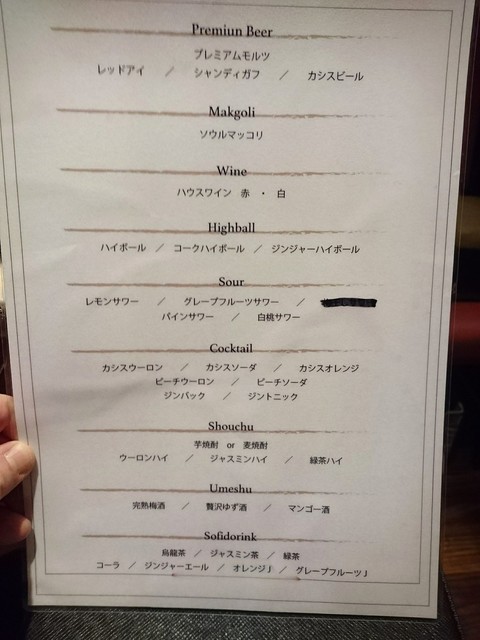 Premiun Beer
プレミアムモルツ
レッドアイ ／ シャンディガフ ／ カシスビール
Makgoli
ソウルマッコリ
Wine
ハウスワイン 赤 ・ 白
Highball
ハイボール ／ コークハイボール ／ ジンジャーハイボール
Sour
レモンサワー ／ グレープフルーツサワー ／
パインサワー ／ 白桃サワー
Cocktail
カシスウーロン ／ カシスソーダ ／ カシスオレンジ
ピーチウーロン ／ ピーチソーダ
ジンバック ／ ジントニック
Shouchu
芋焼酎 or 麦焼酎
ウーロンハイ ／ ジャスミンハイ ／ 緑茶ハイ
Umeshu
完熟梅酒 ／ 贅沢ゆず酒 ／ マンゴー酒
Sofidorink
烏龍茶 ／ ジャスミン茶 ／ 緑茶
コーラ ／ ジンジャーエール ／ オレンジJ ／ グレープフルーツJ